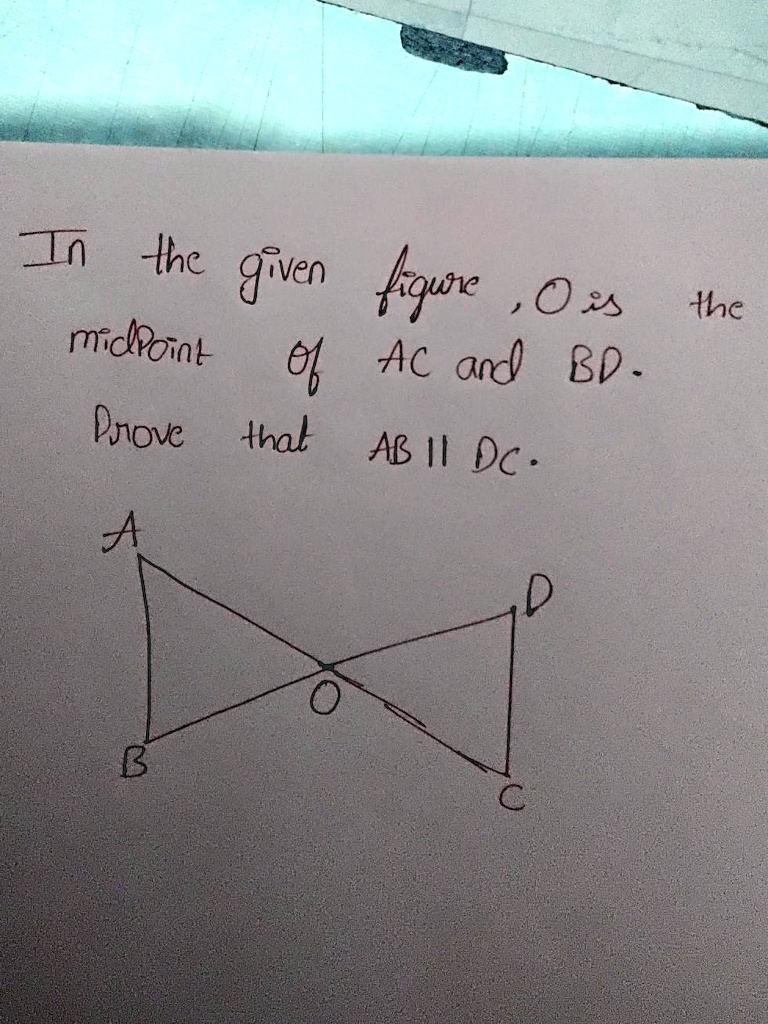 In the given figure, O is the
midpoint of AC and BD.
Prove that AB || DC.
A
D
O
B
C